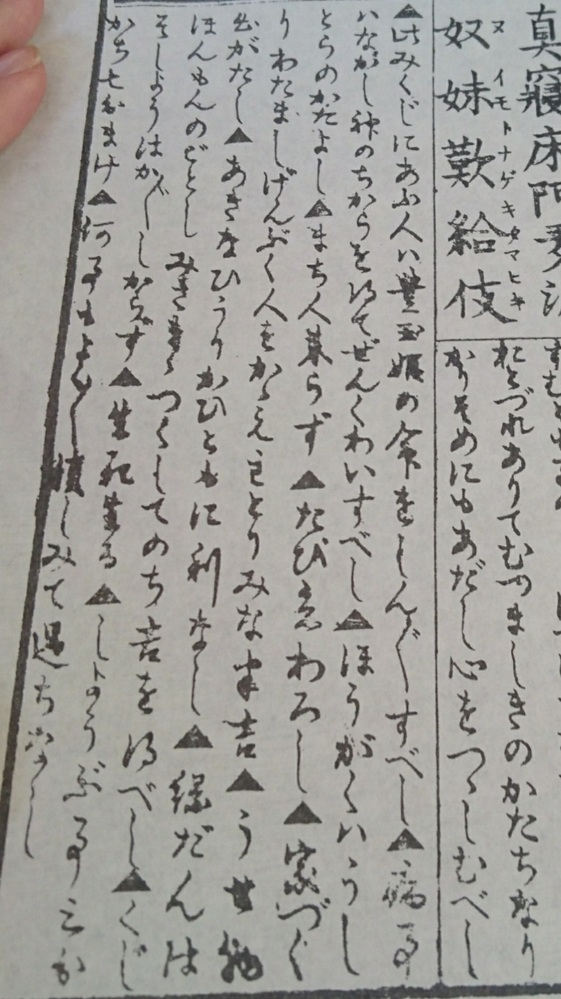 真寝床
奴妹歎給伎
ヌ イモトナゲキタマヒキ
おとづれありてむつましきのかたちなり
かりそめにもあだし心をつゝしむべし
▲此みくじにあふ人ハ豊玉姫の命をしん〴〵すべし▲病事
ハながし神のちからを得てぜんくわいすべし▲ほうがくハうし
とらのかたよし▲まち人来らず▲たび立わろし▲家づく
りわたましげんぶく人をかゝえるとりみな半吉▲うせ物
出がたし▲あきなひうりかひともに利なし▲縁だんは
ほんもんのごとし つゝしてのち吉を得べし▲くじ
そしようはかぐ〳〵しからず▲生死生る▲しようぶ事三か
かち七分まけ▲何事も よく〳〵慎しみて過ち少なし